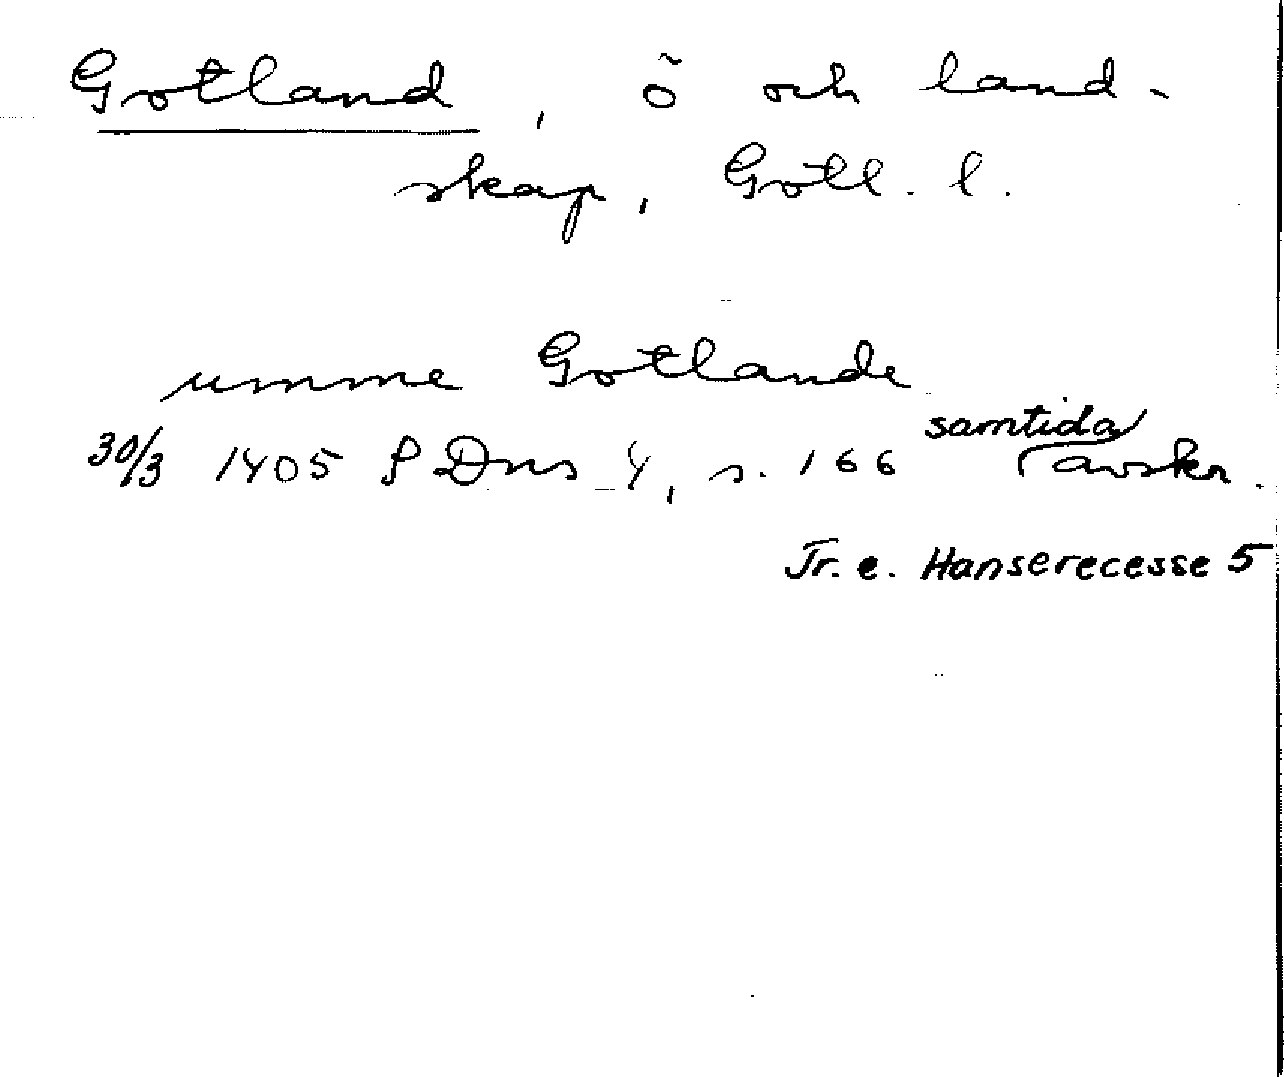 Gotland, ö och land-
skap, Gotl. l.
umme Gotlande
samtida
30/3 1405 SDns 4, s. 166 avskr.
Tr. e. Hanserecesse 5